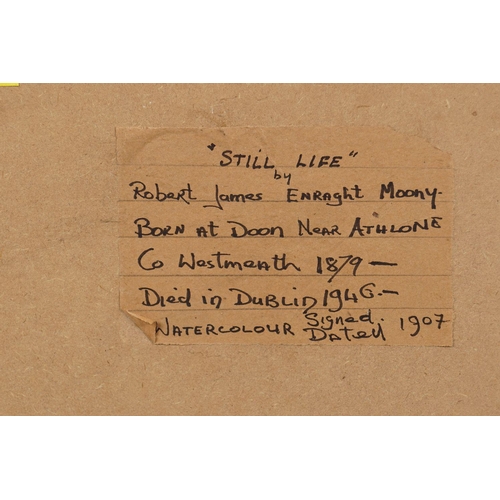 "STILL LIFE"
by
Robert James Enraght Moony-
Born at Doon Near ATHLONE
Co Westmeath 1879 —
Died in Dublin 1946.—
Signed.
WATERCOLOUR Dated 1907